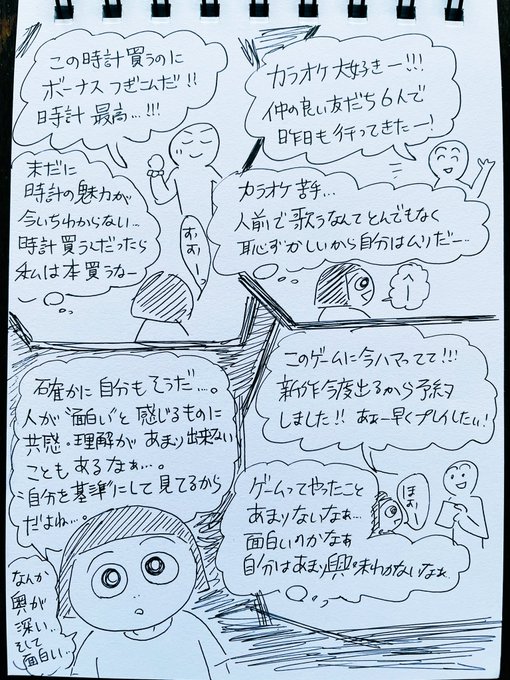 カラオケ大好きー!!!
仲の良い友だち6人で
昨日も行ってきたー!
カラオケ苦手…
人前で歌うなんてとんでもなく
恥ずかしいから自分はムリだー…
へー
この時計買うのに
ボーナスつぎこんだ!!
時計最高…!!!
未だに
時計の魅力が
今いちわからない…
時計買うんだったら
私は本買うなー
すおーっ
このゲームに今ハマってて!!!
新作今度出るから予約
しました!! あぁー早くプレイしたい!
ほぉー
ゲームってやったこと
あまりないなぁ…
面白いのかなぁ
自分はあまり興味わかないなぁ
確かに自分もそうだ…。
人が“面白い”と感じるものに
共感・理解があまり出来ない
こともあるなぁ…。
“自分を基準”にして見てるから
だよね…。
なんか
奥が
深い…
そして
面白い…